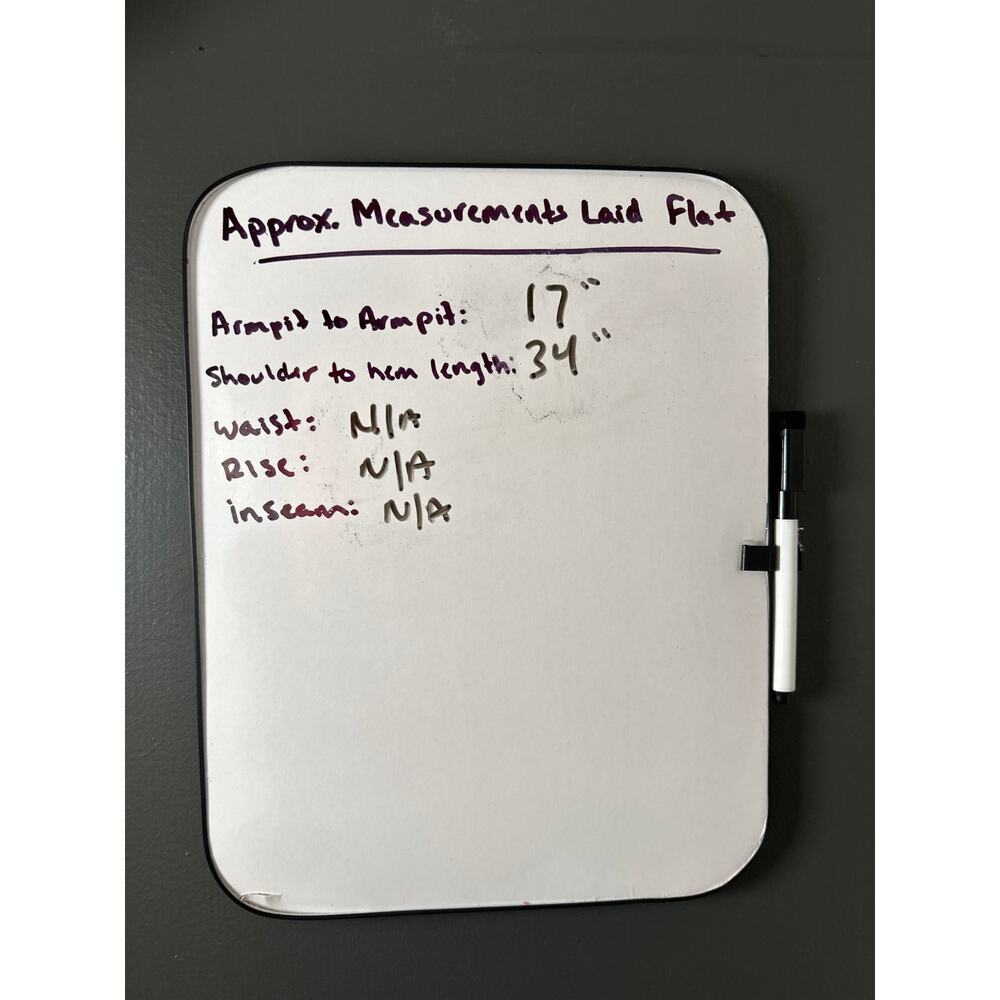 Approx. Measurements Laid Flat
Armpit to Armpit: 17"
Shoulder to hem length: 34"
waist: N/A
Rise: N/A
inseam: N/A